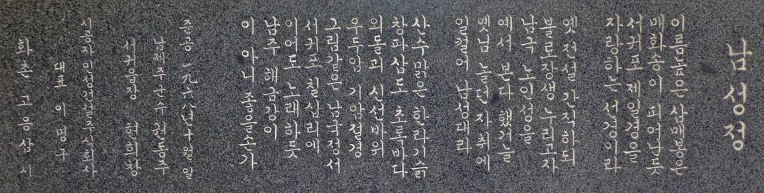 남성정
이름높은 삼매봉은
매화송이 피어난듯
서귀포 제일경을
자랑하는 선경이라
옛 전설 간직하되
불로장생 누리고자
남극 노인성을
예서 본다 했거늘
옛님 놀던 자취에
일컬어 남성대라
산수맑은 한라기슭
창파삼도 초록바다
외돌괴 신선바위
우두암 기암절경
그림같은 남국정서
서귀포 칠십리에
이어도 노래하듯
남주 해금강이
이 아니 좋을손가
준공
남제주군수
서귀읍장
대표 이명구
화촌 고응삼 시